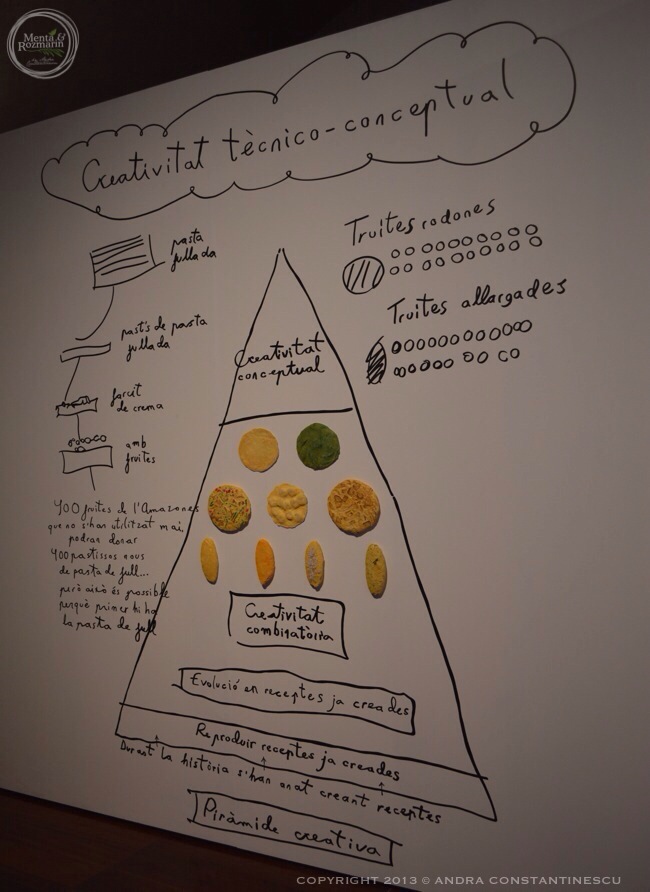 Menta &
Rozmarin
Creativitat tècnico-conceptual
pasta
fullada
pastís de pasta
fullada
farcit
de crema
amb
fruites
400 fruites de l'Amazones
que no s'han utilitzat mai
podran donar
400 pastissos nous
de pasta de full...
però això és possible
perquè primer hi ha
la pasta de full
Truites rodones
Truites allargades
Creativitat
conceptual
Creativitat
combinatòria
Evolució en receptes ja creades
Reproduir receptes ja creades
Durant la història s'han anat creant receptes
Piràmide creativa
COPYRIGHT 2013 © ANDRA CONSTANTINESCU